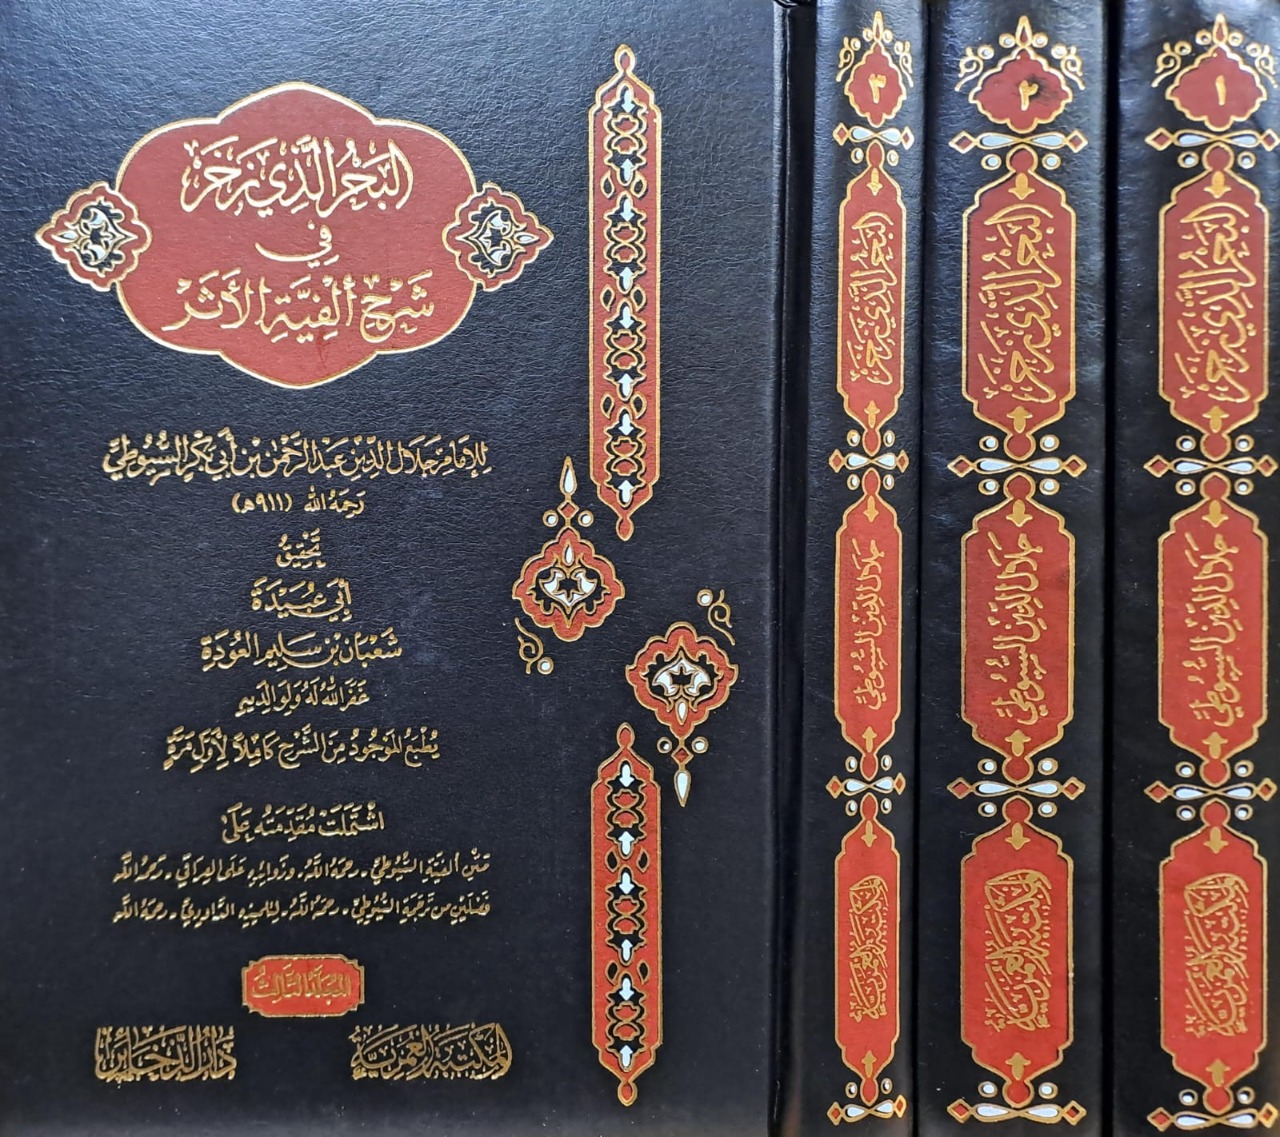 البَحْرُ الَّذِي زَخَرَ
فِي
شَرْحِ أَلْفِيَّةِ الأَثَرْ
لِلإِمَامِ جَلَالِ الدِّينِ عَبْدِ الرَّحْمٰنِ بْنِ أَبِي بَكْرٍ السُّيُوطِيِّ
رَحِمَهُ اللهُ (٩١١ هـ)
تَحْقِيقُ
أَبِي عُبَيْدَةَ
شَعْبَانَ بْنِ سَلِيمٍ العَوْدَةِ
غَفَرَ اللهُ لَهُ وَلِوَالِدَيْهِ
يُطْبَعُ المَوْجُودُ مِنَ الشَّرْحِ كَامِلًا لِأَوَّلِ مَرَّةٍ
اشْتَمَلَتْ مُقَدِّمَتُهُ عَلَى
مَتْنِ أَلْفِيَّةِ السُّيُوطِيِّ - رَحِمَهُ اللَّهُ - وَزَوَائِدِهِ عَلَى العِرَاقِيِّ - رَحِمَهُ اللَّهُ
فَصْلَيْنِ مِنْ تَرْجَمَةِ السُّيُوطِيِّ - رَحِمَهُ اللَّهُ - لِتِلْمِيذِهِ الدَّاوُدِيِّ - رَحِمَهُ اللَّهُ
المُجَلَّدُ الثَّالِثُ
المكتبة العمرية
دار الذخائر
٣
البَحْرُ الَّذِي زَخَرَ
جَلَالُ الدِّينِ السُّيُوطِيُّ
المكتبة العمرية
٢
البَحْرُ الَّذِي زَخَرَ
جَلَالُ الدِّينِ السُّيُوطِيُّ
المكتبة العمرية
١
البَحْرُ الَّذِي زَخَرَ
جَلَالُ الدِّينِ السُّيُوطِيُّ
المكتبة العمرية